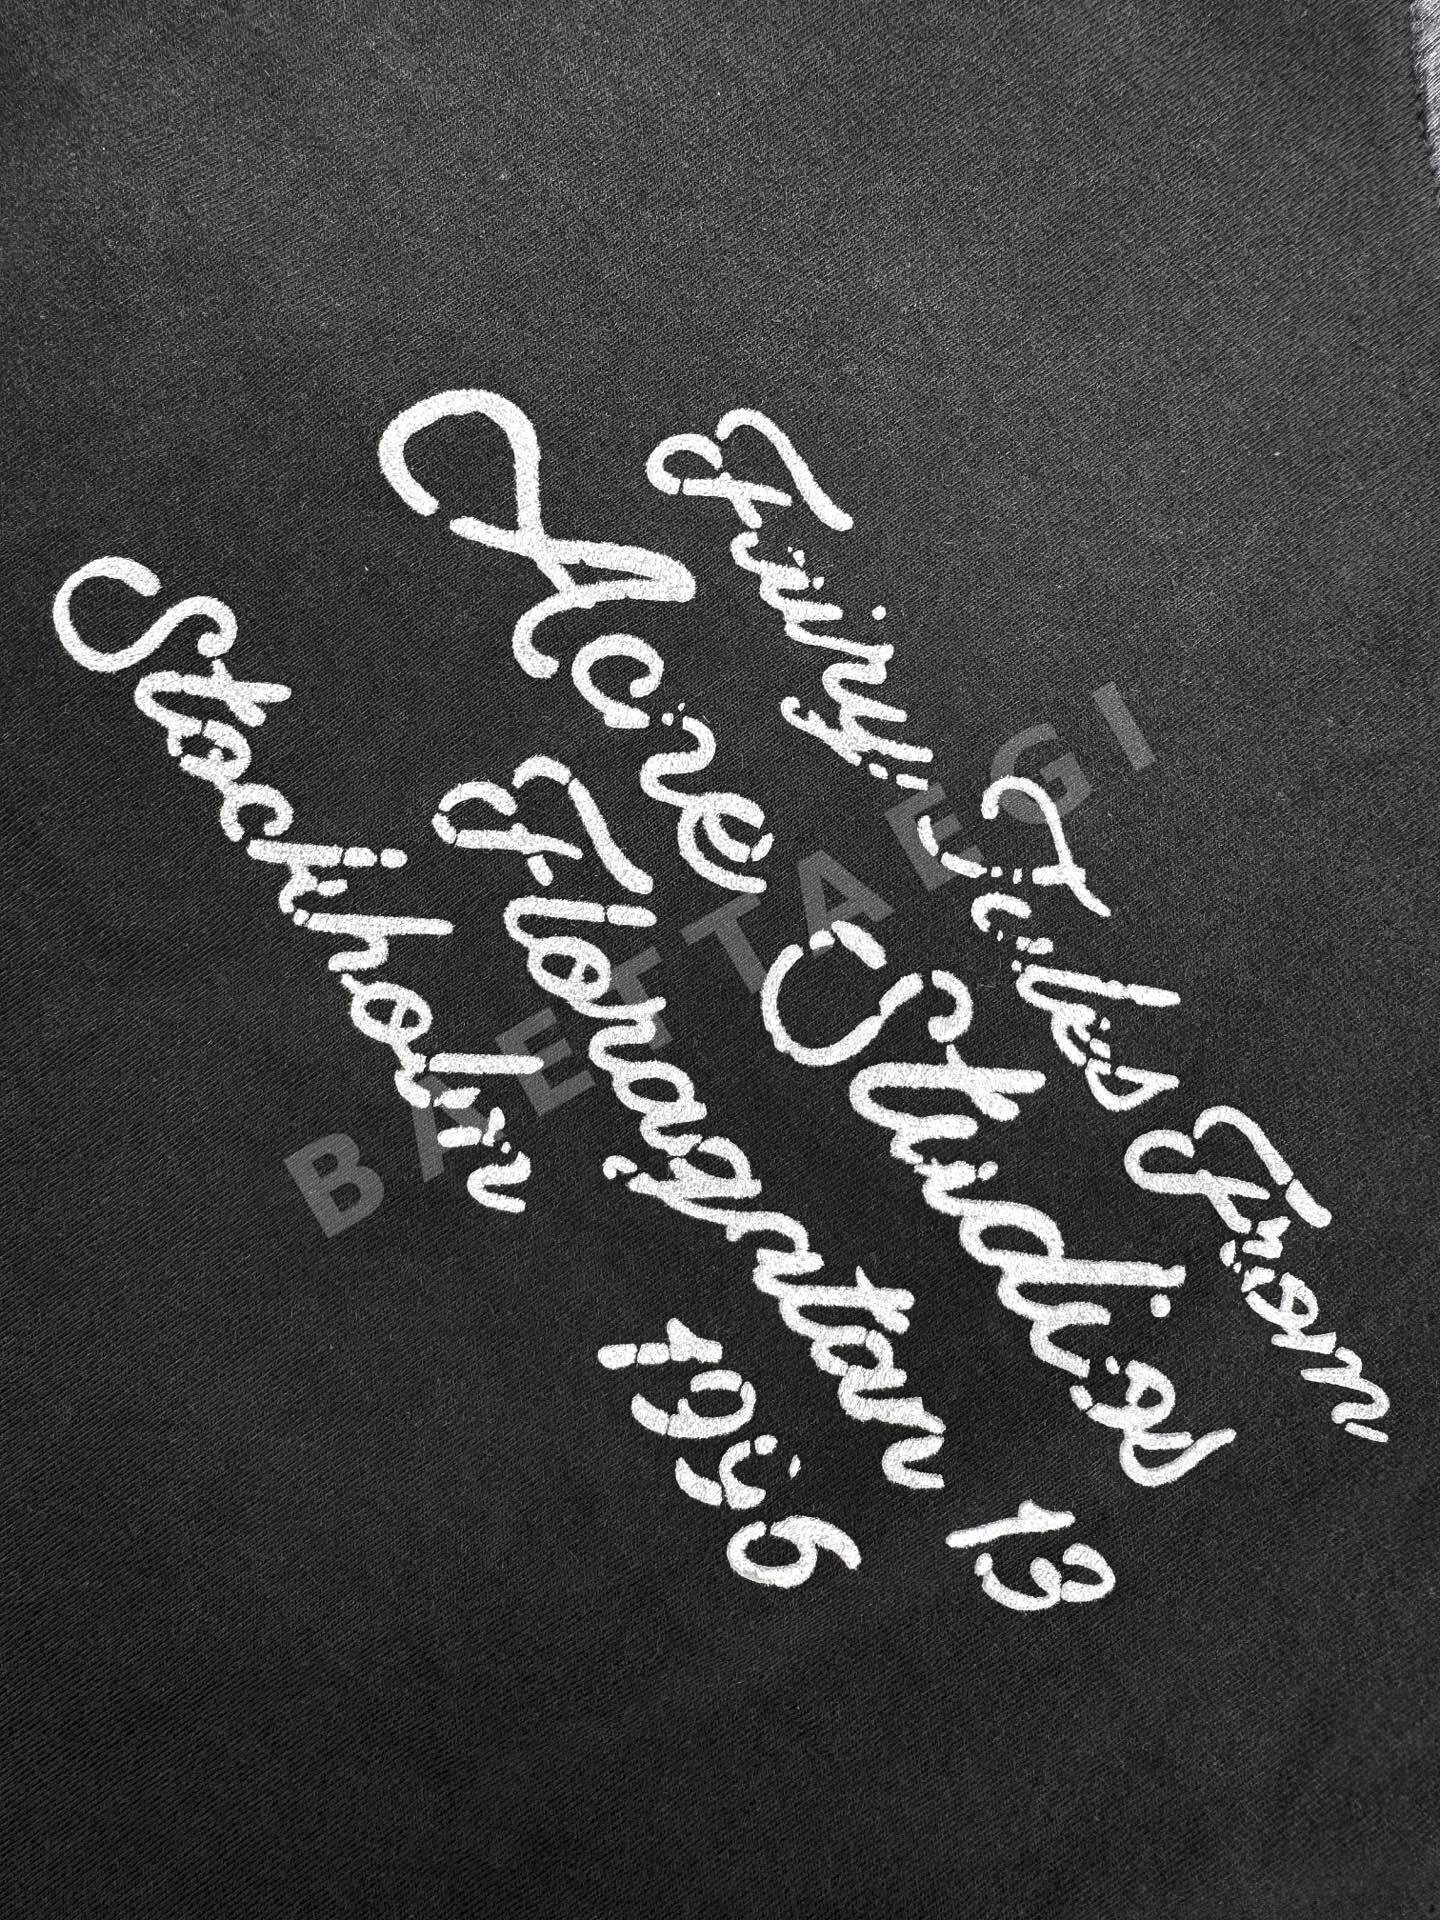 Fairy Tales From
Acne Studios
Floragatan 13
Stockholm
1996
BAETTAEGI